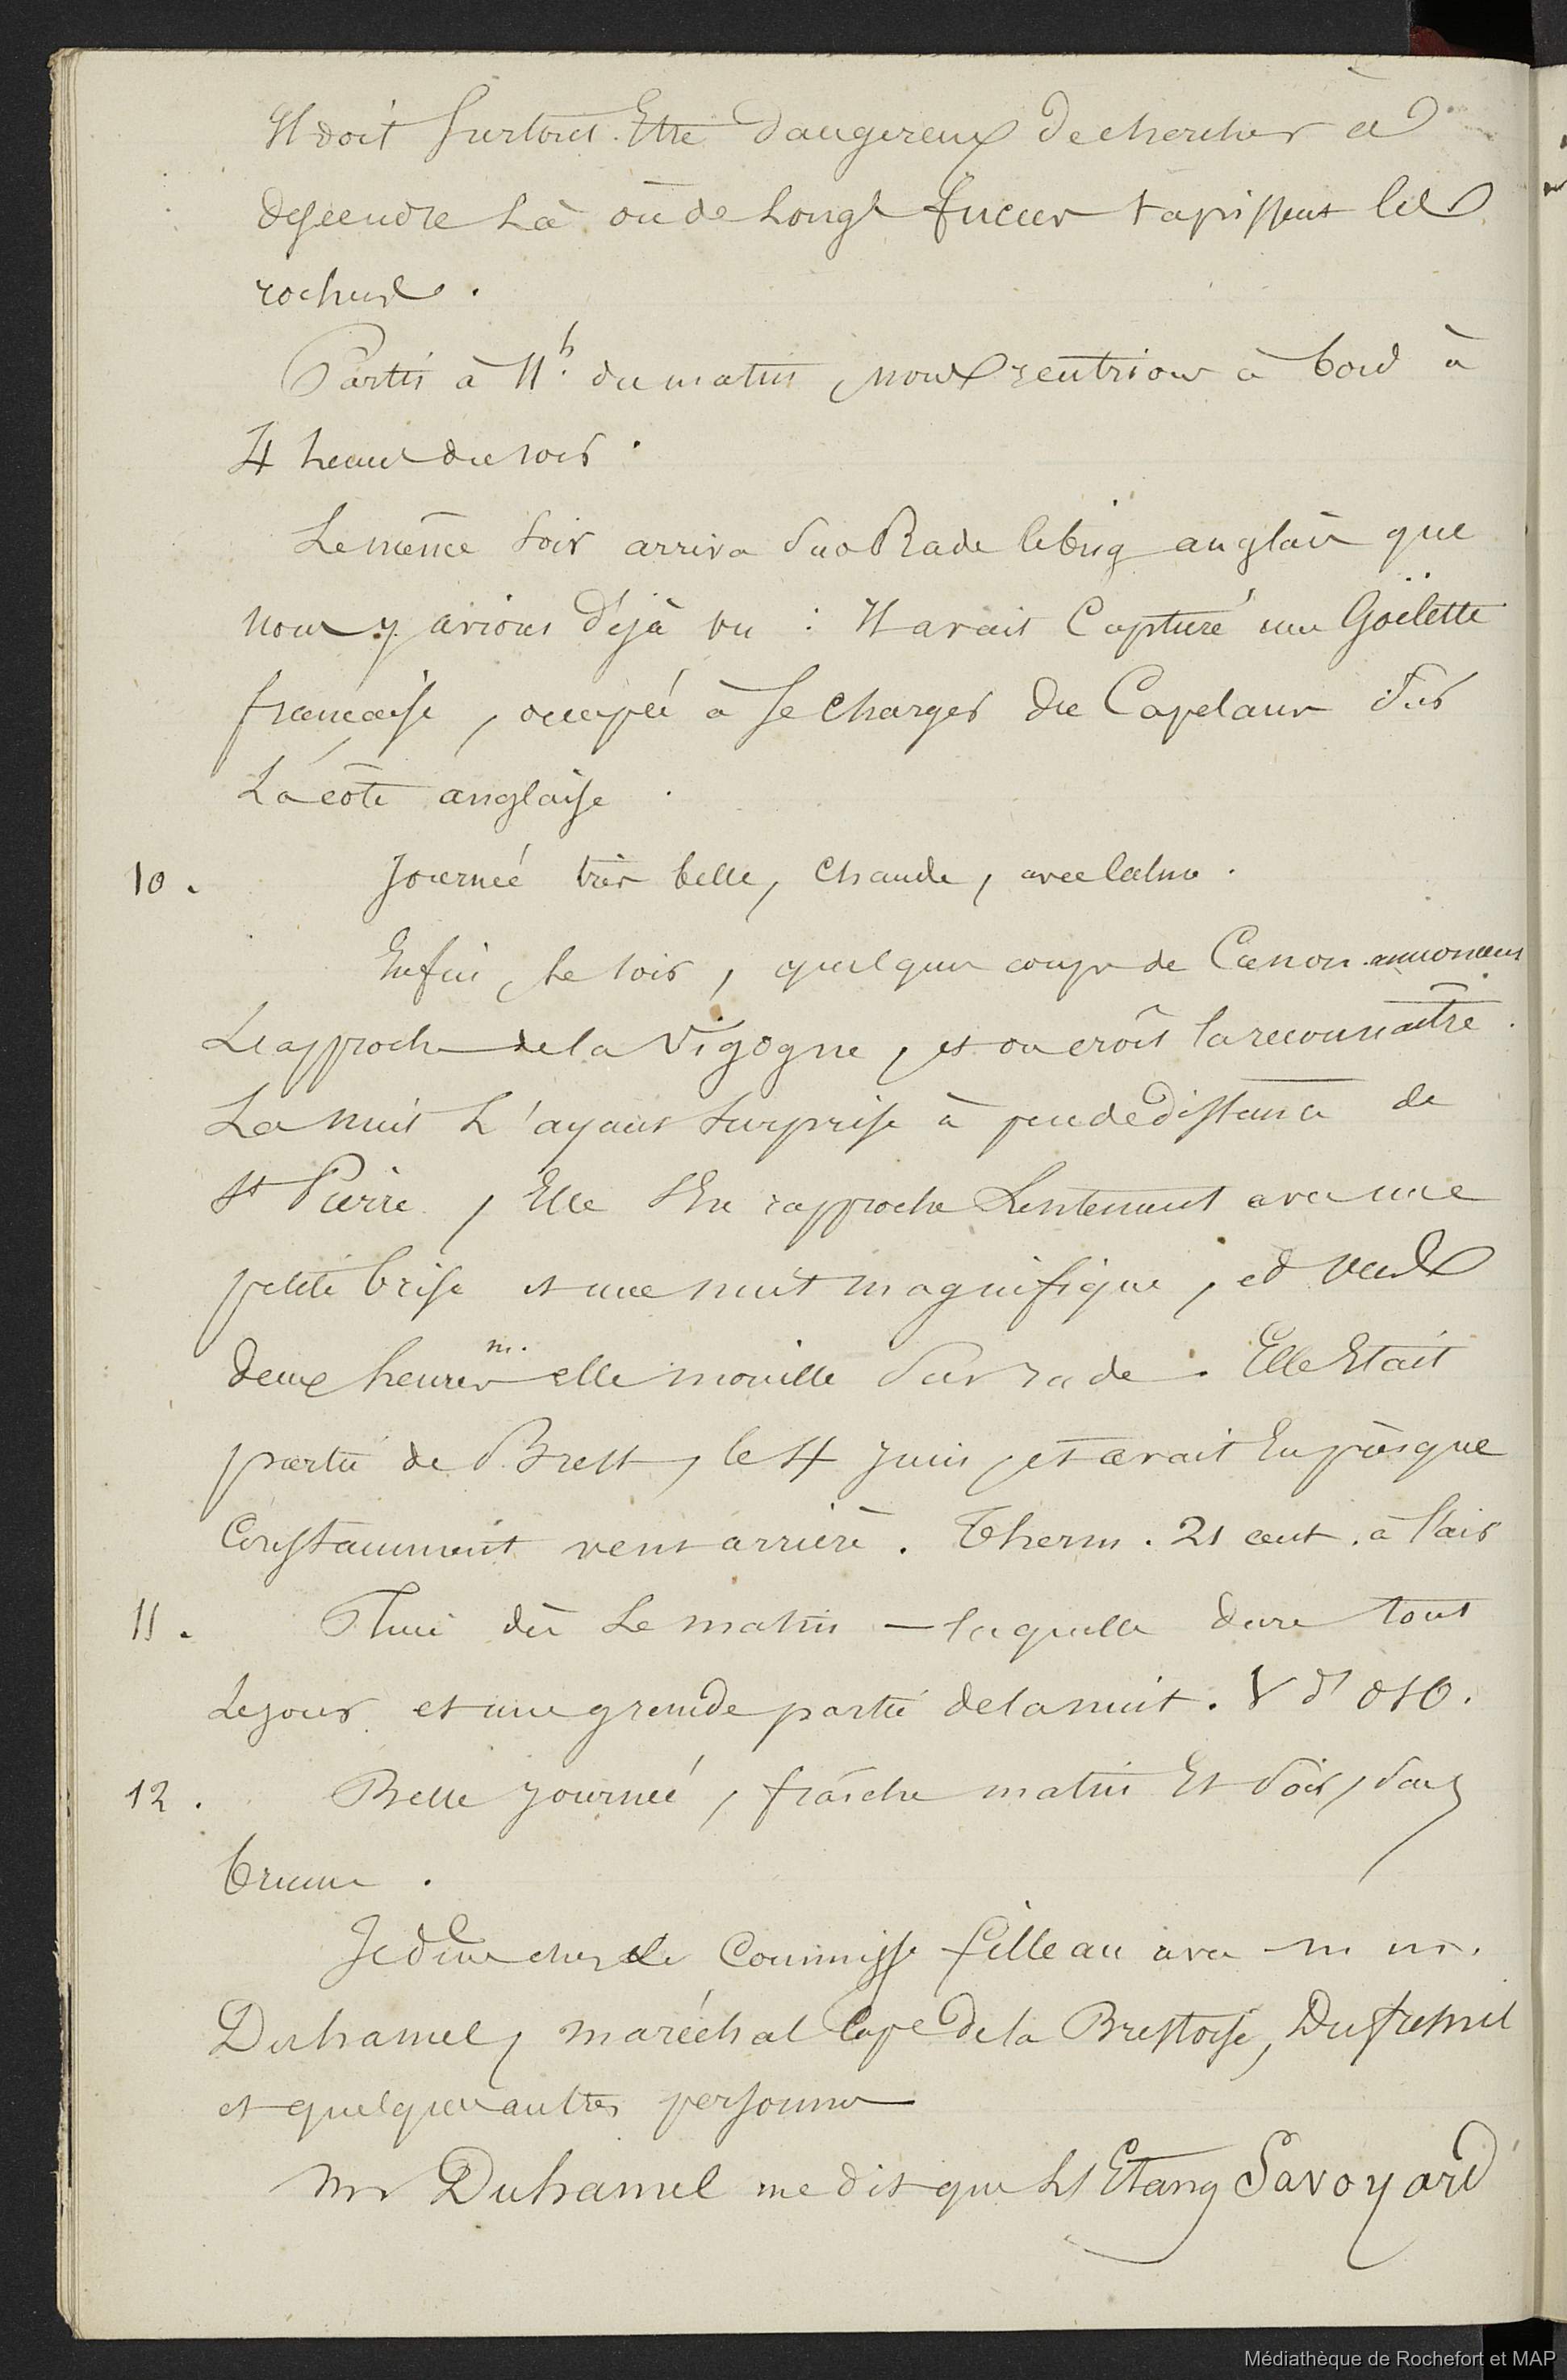 Il doit surtout Etre dangereux de chercher à
descendre Là où de Longs fucus tapissent les
rochers.
Partis à 11h. du matin, nous rentrions à bord à
4 heures du soir.
Le même soir arriva sur Rade le brig anglais que
nous y avions déjà vu : Il avait Capturé une Goëlette
française, occupée à se Charger de Capelans sur
La côte anglaise.
10. Journée très belle, Chaude, avec Calme.
Enfin, Le soir, quelques coups de Canon annoncent
L'approche de la Vigogne, et on croit la reconnaître.
La nuit L'ayant surprise à peu de distance de
St Pierre, Elle s'En rapproche Lentement avec une
petite brise et une nuit magnifique, et vers
deux heures m. elle mouille sur rade. Elle Etait
partie de Brest, le 4 juin, et avait Eu presque
Constamment vent arrière. Therm. 21 cent. à l'air
11. Pluie dès Le matin — laquelle dure tout
Le jour et une grande partie de la nuit. V d' OSO.
12. Belle journée, fraîche matin Et soir, sans
brume.
Je dîne chez le Commisse filleau avec m m.
Duhamel, maréchal Cape de la Brestoise, Dufresnil
et quelques autres personnes
Mr Duhamel me dit que L'Etang Savoyard
Médiathèque de Rochefort et MAP